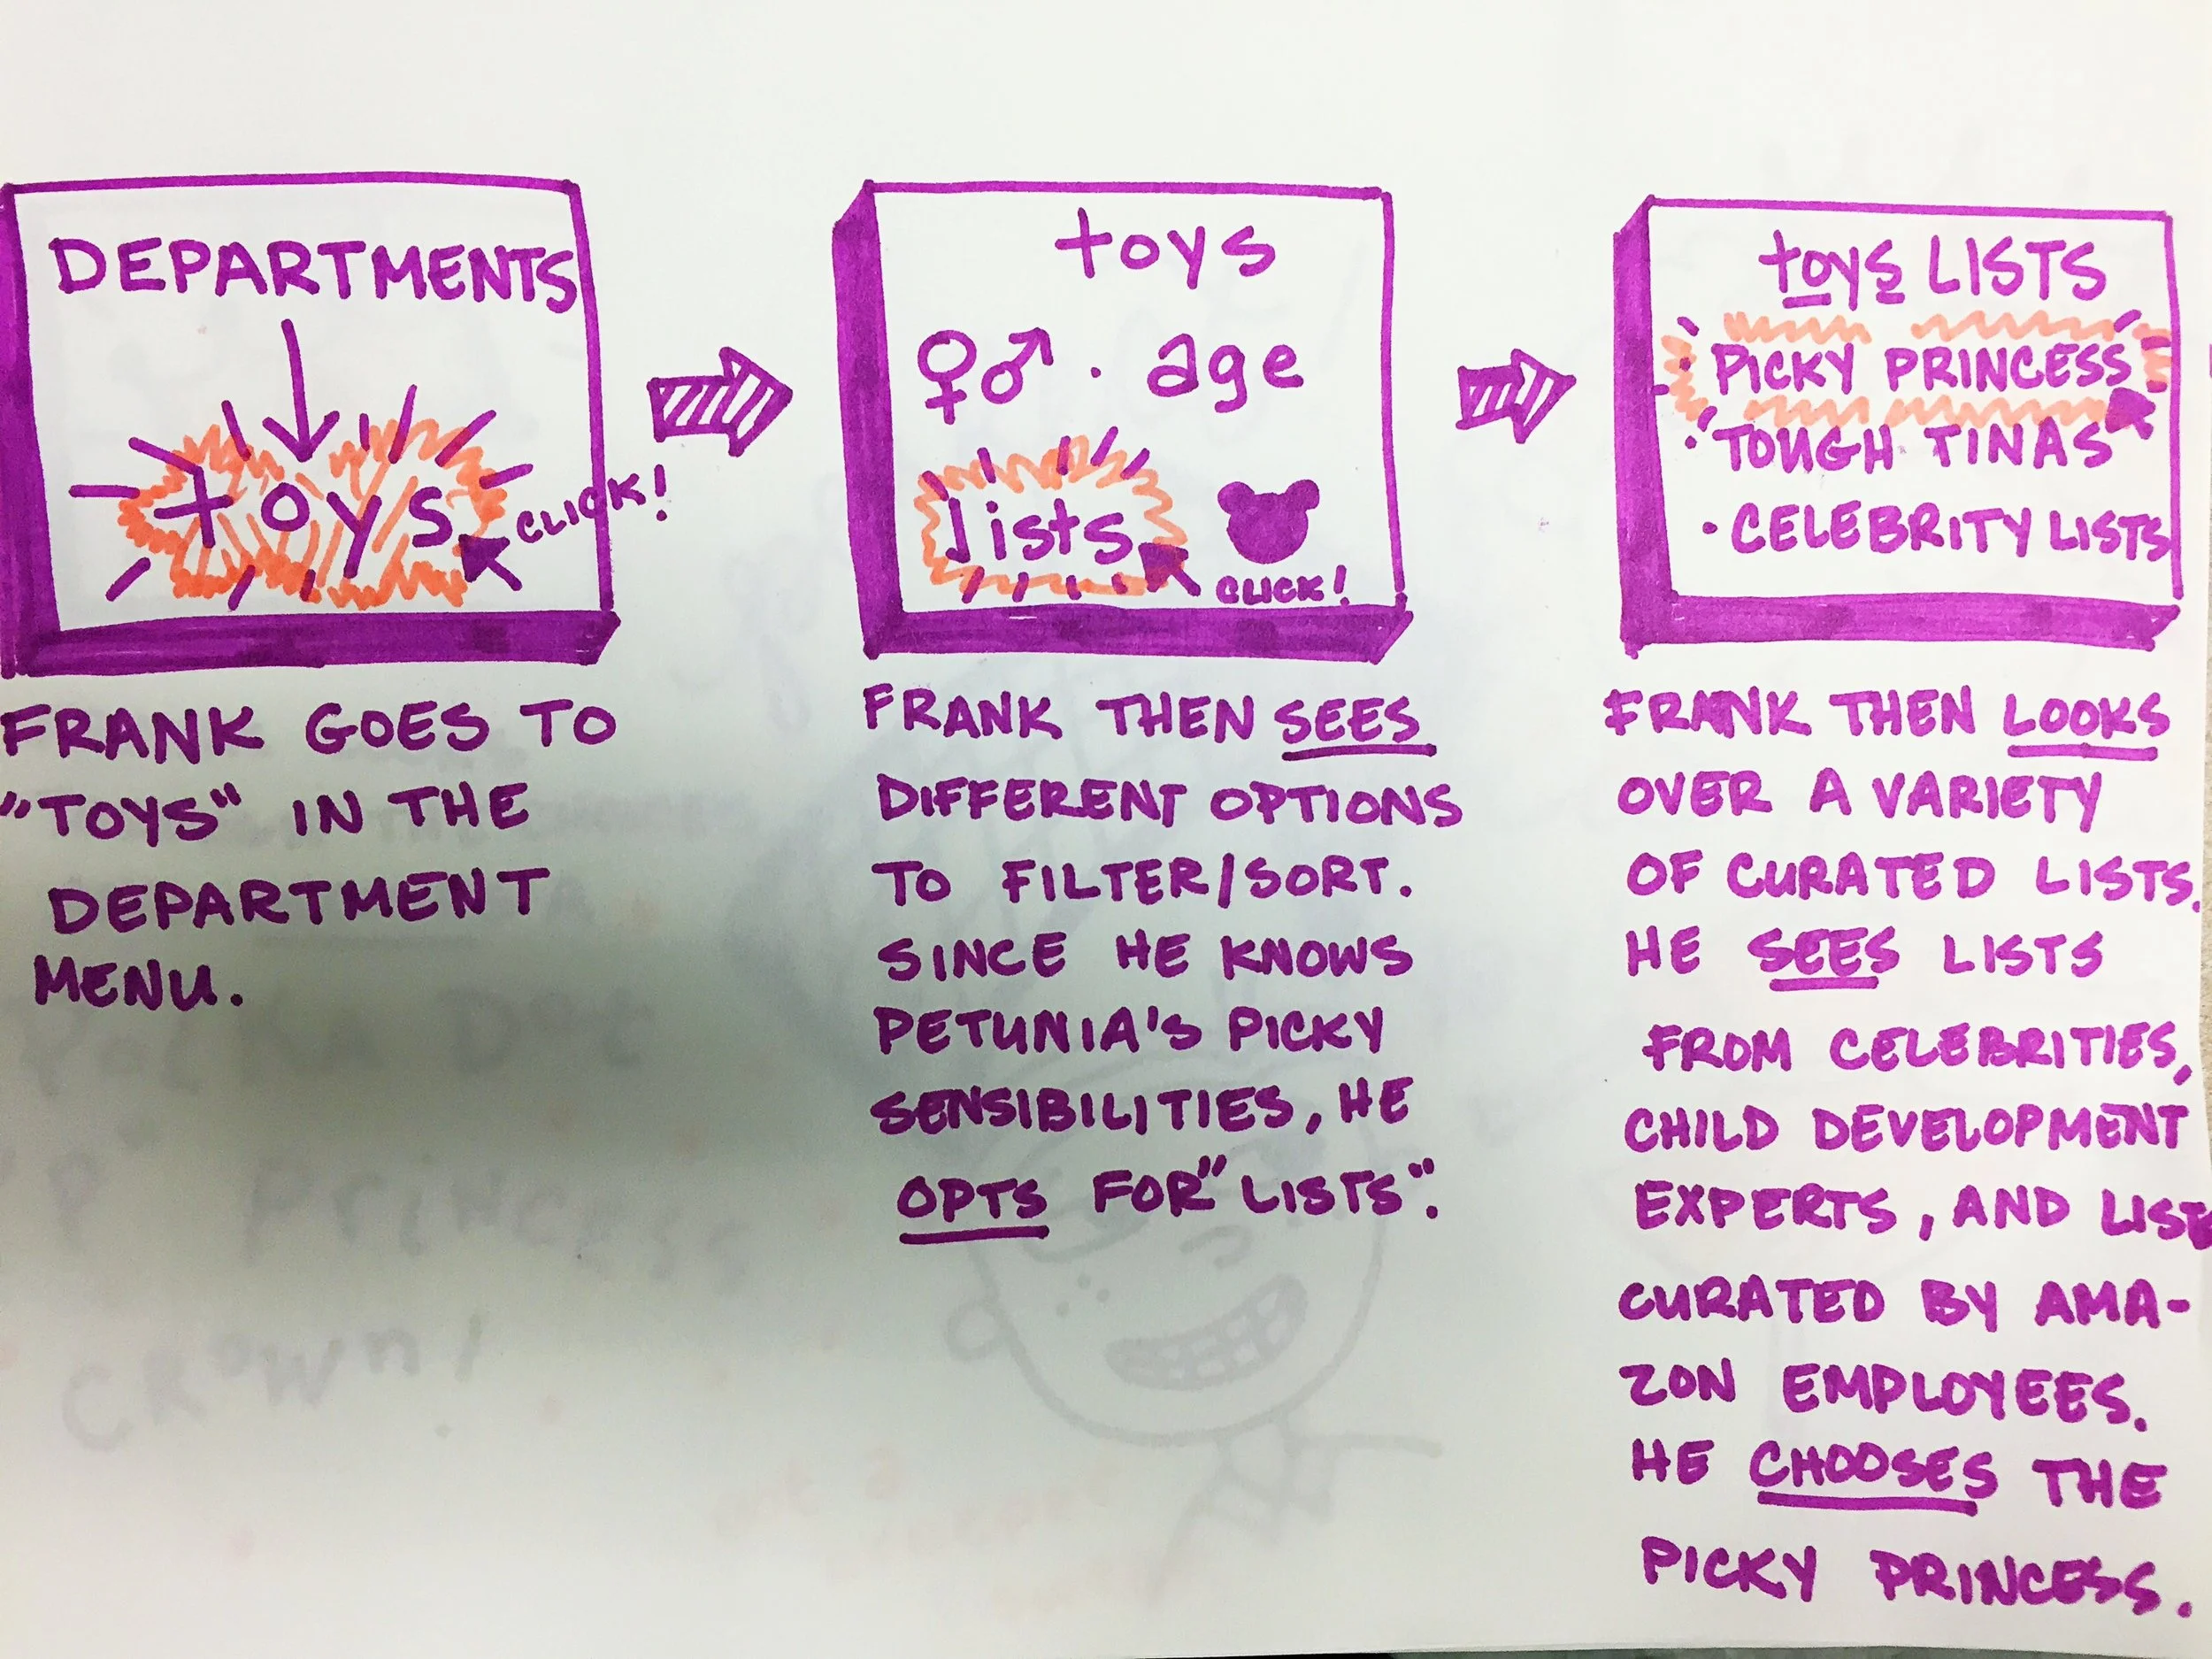 DEPARTMENTS
toys
CLICK!
FRANK GOES TO
"TOYS" IN THE
DEPARTMENT
MENU.
toys
♀♂ · age
lists
CLICK!
FRANK THEN SEES
DIFFERENT OPTIONS
TO FILTER/SORT.
SINCE HE KNOWS
PETUNIA'S PICKY
SENSIBILITIES, HE
OPTS FOR "LISTS".
toys LISTS
PICKY PRINCESS
· TOUGH TINAS
· CELEBRITY LISTS
FRANK THEN LOOKS
OVER A VARIETY
OF CURATED LISTS.
HE SEES LISTS
FROM CELEBRITIES,
CHILD DEVELOPMENT
EXPERTS, AND LIST
CURATED BY AMA-
ZON EMPLOYEES.
HE CHOOSES THE
PICKY PRINCESS.
PRINCESS
CROWN!